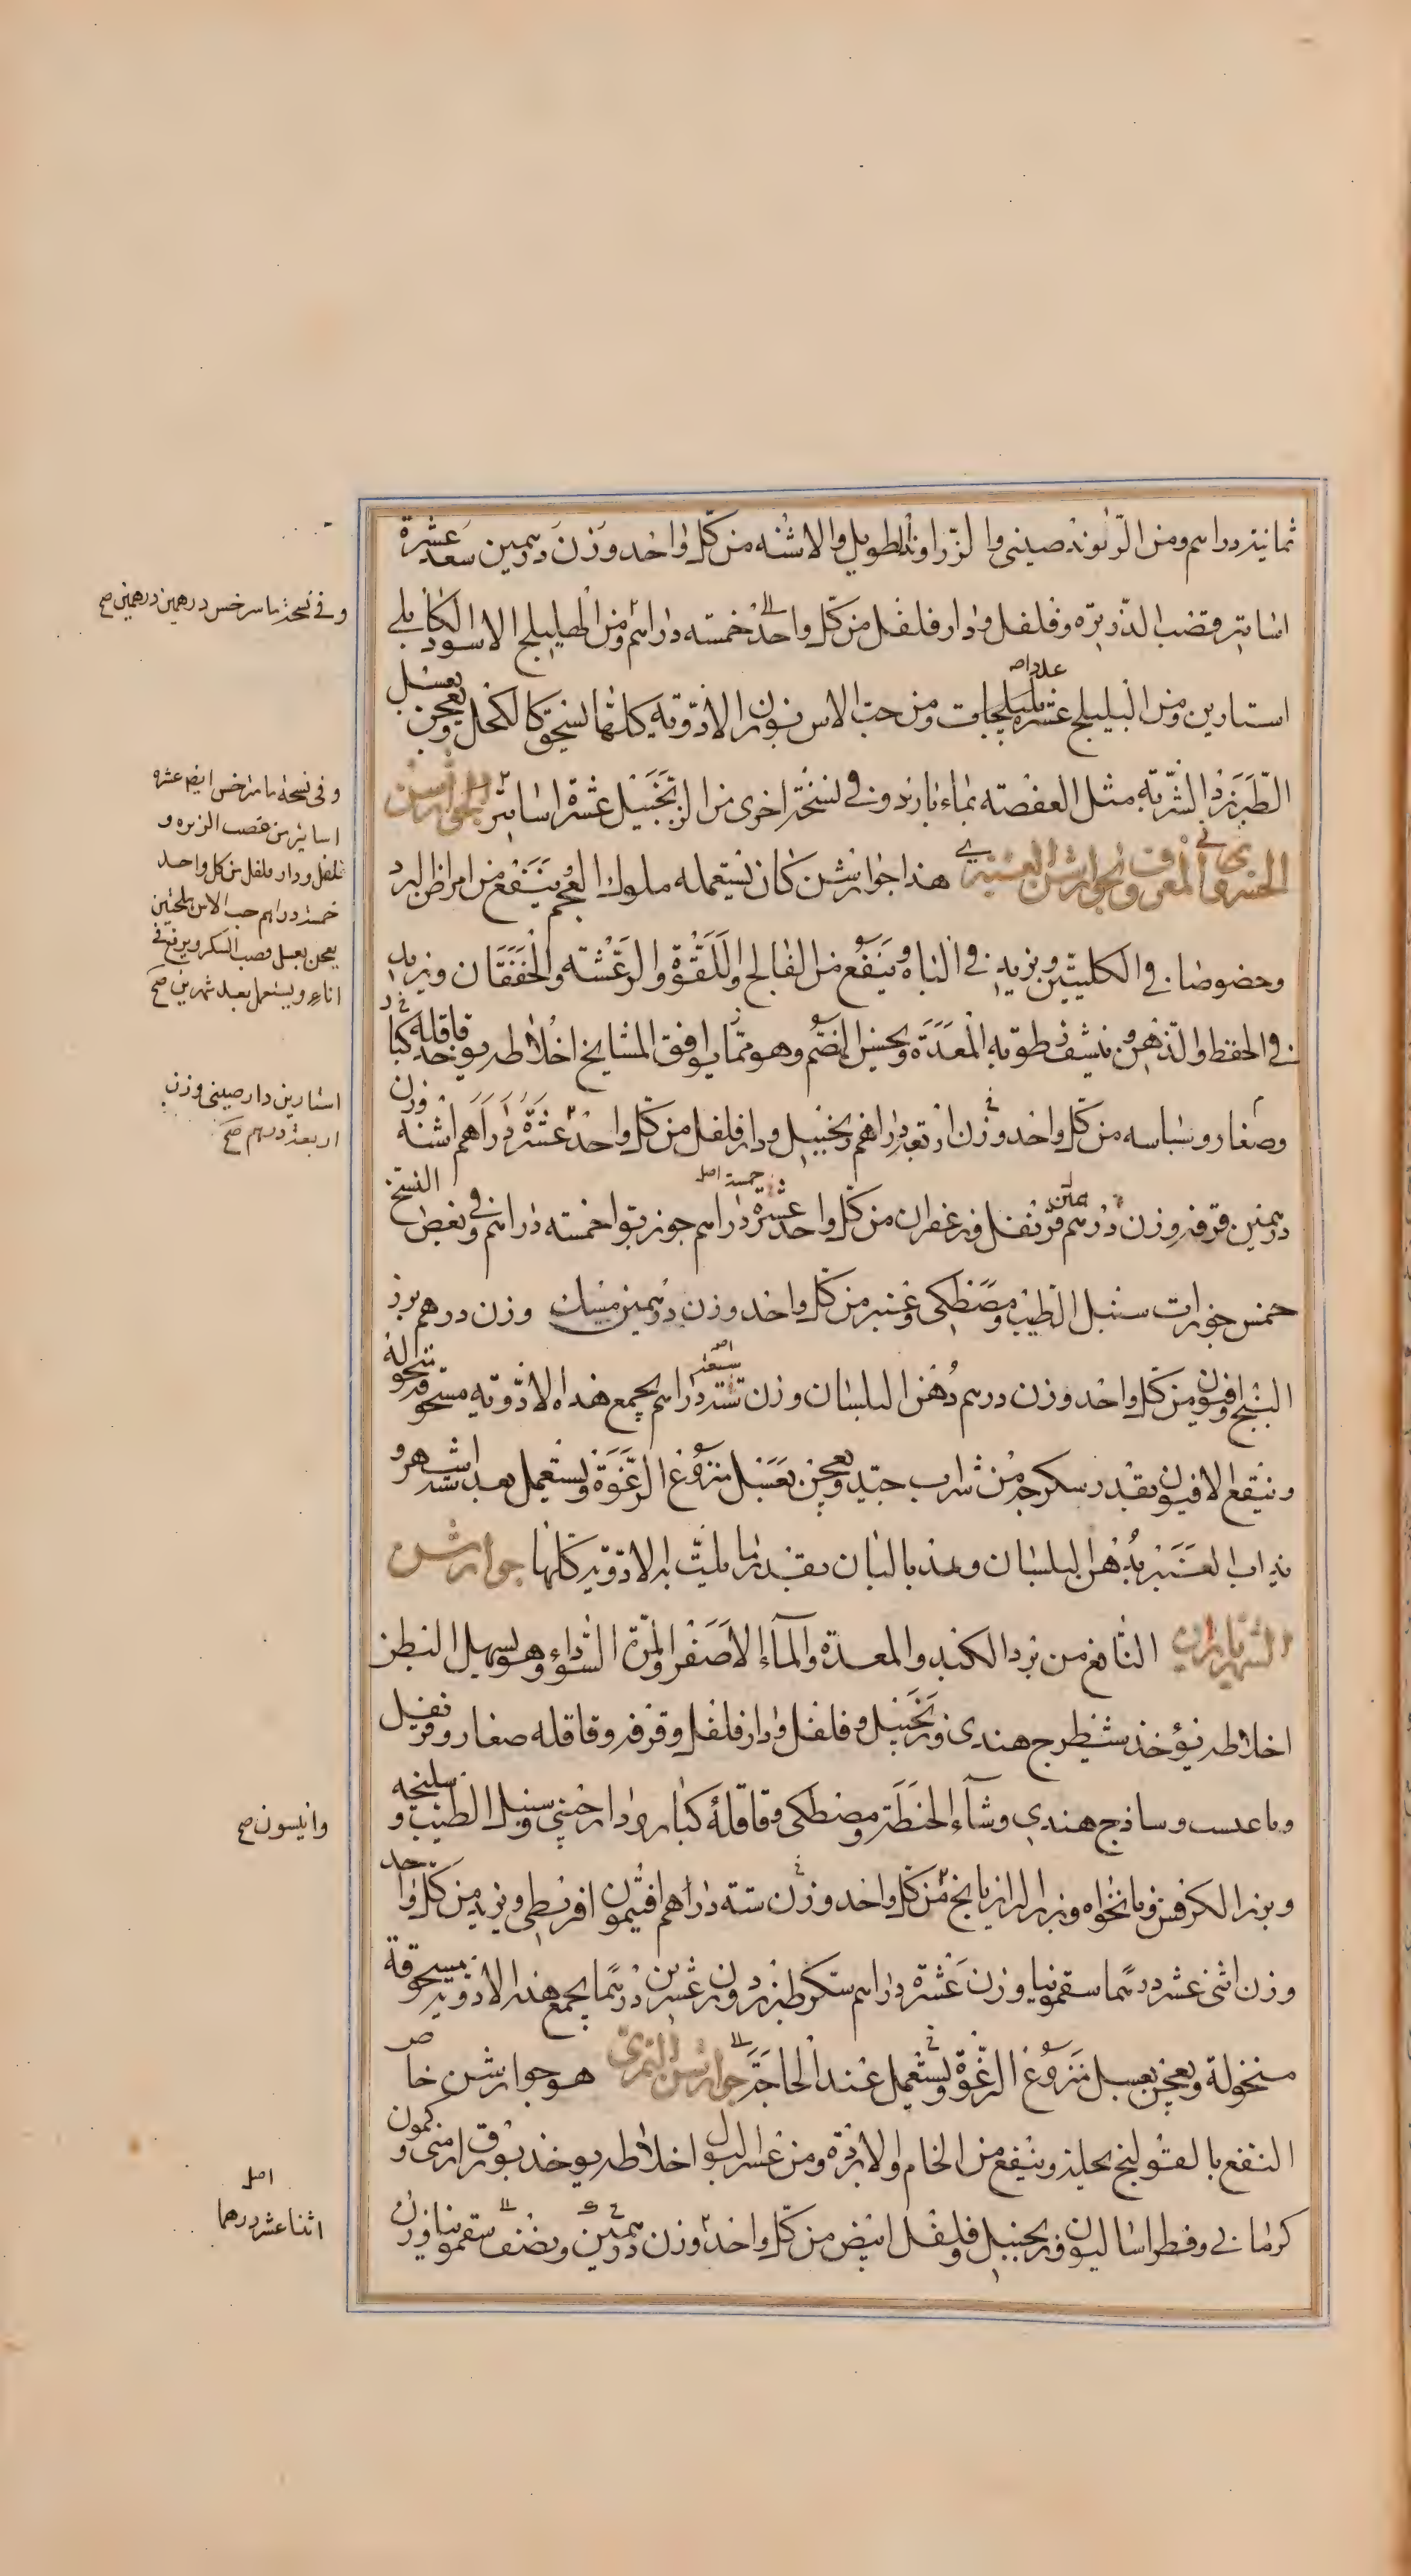 ثمانية دراهم ومن الرّٮوند صينى والزّراوند الطويل والاشنه من كلّ واحد وزن درهمين سعد عشرة
اساتير وقصب الذّريرة وفلفل ودار فلفل من كلّ واحد خمسه دراهم ومن الهليلج الاسود الكابلى
استارين ومن البليلج عشرة بليلجات ومن حبّ الاس نورن الادوية كلّها تسحق كالكحل ويعجن بعسل
عدداصه
الطّبرزد الشّربة مثل العفصة بماء بارد وفى نسخة اخرى من الزنجبيل عشرة اساتير الجوارشن
الخسروى المعروف بجوارشن العنبرى هذا جوارشن كان يستعمله ملوك العجم ينفع من امراض البرد
وخصوصا فى الكليتين ويزيد فى الباه وينفع من الفالج واللقوة والرعشه والخفقان ويزيد
فى الحفظ والذهن وينشف رطوبه المعدة ويحسن الهضم وهو ممّا يوافق المشايخ اخلاطه يوخذ قاقله كبار
وصغار وبسباسه من كلّ واحد وزن اربعة دراهم زنجبيل ودار فلفل من كلّ واحد عشرة دراهم اشنه وزن
درهمين قرفه وزن درهم قرنفل وزعفران من كلّ واحد عشرة دراهم جوز بوا خمسه دراهم وفى بعض النسخ
خمسة اصل
خمس جوزات سنبل الطيب ومصطكى وعنبر من كلّ واحد وزن درهمين مسك وزن درهم بزر
البنج وافيون من كلّ واحد وزن درهم دهن البلسان وزن ستة دراهم يجمع هذه الادوية مسحوقه منخولة
سبعة اصه
وينقع الافيون بقدر سكرجه من شراب جيّد ويعجن بعسل منزوع الرّغوة ويستعمل بعد ستة اشهر و
يذاب العنبر بدهن البلسان ومذ بالبان بقدر ما يلتّ به الادوية كلّها جوارشن
الشهرياران النافع من برد الكبد والمعدة والماء الاصفر والمرّة السّوداء وهو يسهل البطن
اخلاطه يؤخذ شيطرج هندى وزنجبيل وفلفل ودار فلفل وقرفه وقاقله صغار وقرنفل
وماعدست وساذج هندى ونشاء الحنطة ومصطكى وقاقلة كبار ودار صينى وسنبل الطيب وسليخه
وبزر الكرفس ونانخواه وبزر الرازيانج من كلّ واحد وزن ستة دراهم افتيمون اقريطى وتربد من كلّ واحد
وزن اثنى عشر درهما سقمونيا وزن عشرة دراهم سكر طبرزد وزن عشرين درهما يجمع هذه الادوية مسحوقة
منخولة ويعجن بعسل منزوع الرّغوة ويستعمل عند الحاجة جوارشن التمرى هو جوارشن خاص
النفع بالقولنج يحلّه وينفع من الخام والابردة ومن عسر البول اخلاطه يوخذ بورق ارمنى وكمون
كرمانى وفطراساليون وزنجبيل وفلفل ابيض من كلّ واحد وزن درهمين ونصف سقمونيا وزن
وفى نسخة ماسرخس درهمين درهمين صح
وفى نسخة ماسرخس ايضا عشرة
اساتير من قصب الزيره و
فلفل ودار فلفل من كل واحد
خمسة دراهم حب الاس بلحتين
يعجن بعسل قصب السكر ويرفع فى
اناء ويستعمل بعد شهرين صح
استارين دار صينى وزن
اربعة درهم صح
وانيسون صح
اصل
اثنا عشر درهما